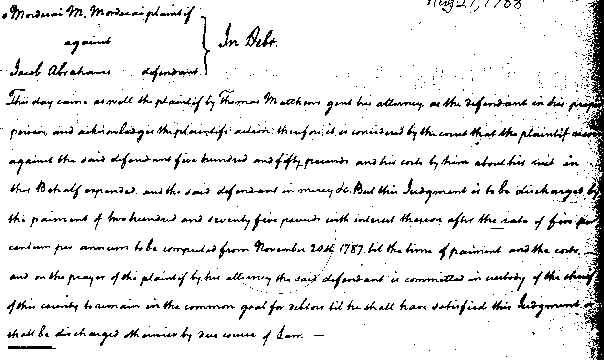 Aug 21, 1788
Mordecai M. Mordecai plaintif
against
In Debt.
Jacob Abrahams defendant
This day came as well the plaintif by Thomas Matthews gent his attorney as the defendant in his proper
person, and acknowledges the plaintifs action therefore it is considered by the court that the plaintif recover
against the said defendant five hundred and fifty pounds and his costs by him about his suit in
this Behalf expended. and the said defendant in mercy &c. But this Judgment is to be discharged by
the paiment of two hundred and seventy five pounds with interest thereon after the rate of five per
centum per annum to be computed from November 20th 1787. til the time of paiment and the costs.
and on the prayer of the plaintif by his attorney the said defendant is committed in custody of the sherif
of this county to remain in the common goal for debtors til he shall have satisfied this Judgment or
shall be discharged otherwise by due course of Law. —